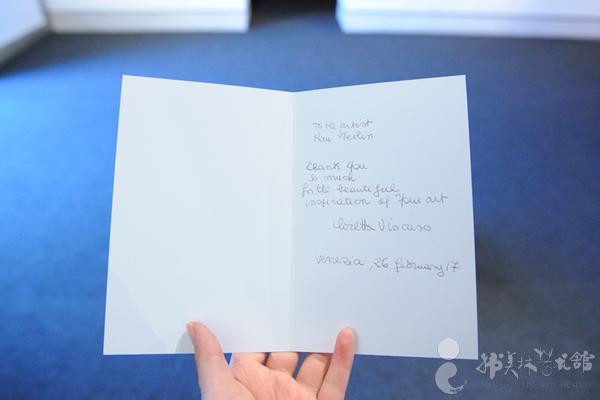 To the artist
Han Meilin
Thank you
so much
for the beautiful
inspiration of your art
Loretta Viscuso
Venezia, 26 february 17
韩美林艺术館
HAN MEILIN ART MUSEUM